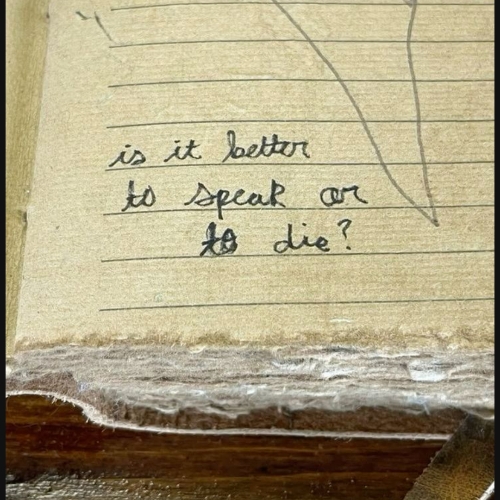 is it better
to speak or
to die?